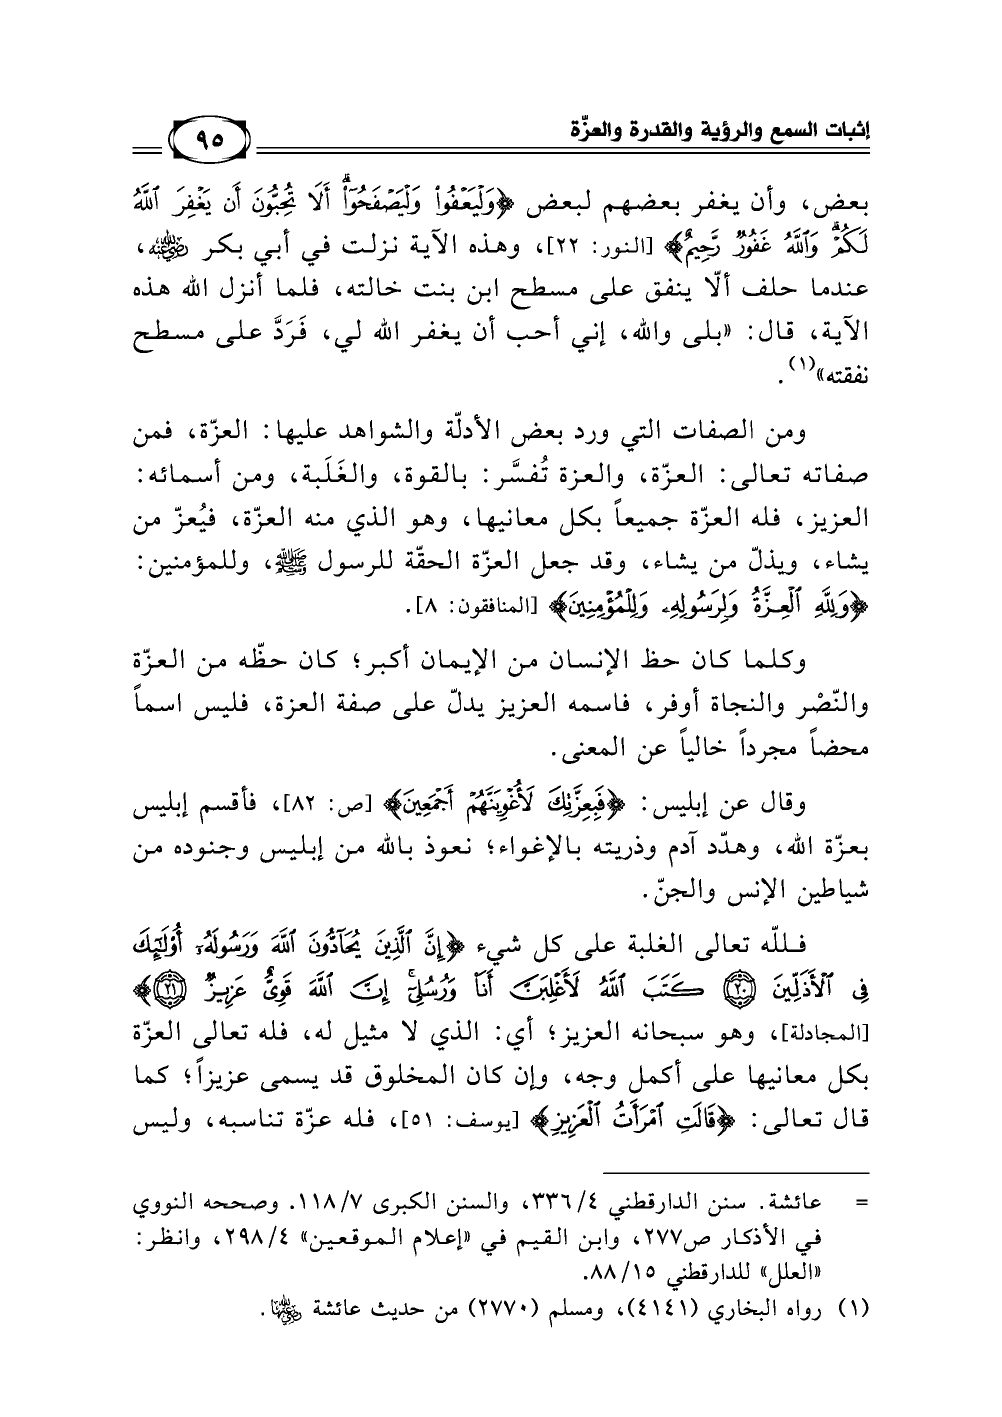 إثبات السمع والرؤية والقدرة والعزّة
٩٥
بعض، وأن يغفر بعضهم لبعض ﴿وَلْيَعْفُوا۟ وَلْيَصْفَحُوٓا۟ ۗ أَلَا تُحِبُّونَ أَن يَغْفِرَ ٱللَّهُ
لَكُمْ ۗ وَٱللَّهُ غَفُورٌ رَّحِيمٌ﴾ [النور: ٢٢]، وهذه الآية نزلت في أبي بكر رضي الله عنه،
عندما حلف ألّا ينفق على مسطح ابن بنت خالته، فلما أنزل الله هذه
الآية، قال: «بلى والله، إني أحب أن يغفر الله لي، فَرَدَّ على مسطح
نفقته»(١).
ومن الصفات التي ورد بعض الأدلّة والشواهد عليها: العزّة، فمن
صفاته تعالى: العزّة، والعزة تُفسَّر: بالقوة، والغَلَبة، ومن أسمائه:
العزيز، فله العزّة جميعاً بكل معانيها، وهو الذي منه العزّة، فيُعزّ من
يشاء، ويذلّ من يشاء، وقد جعل العزّة الحقّة للرسول ﷺ، وللمؤمنين:
﴿وَلِلَّهِ ٱلْعِزَّةُ وَلِرَسُولِهِۦ وَلِلْمُؤْمِنِينَ﴾ [المنافقون: ٨].
وكلما كان حظ الإنسان من الإيمان أكبر؛ كان حظّه من العزّة
والنّصْر والنجاة أوفر، فاسمه العزيز يدلّ على صفة العزة، فليس اسماً
محضاً مجرداً خالياً عن المعنى.
وقال عن إبليس: ﴿فَبِعِزَّتِكَ لَأُغْوِيَنَّهُمْ أَجْمَعِينَ﴾ [ص: ٨٢]، فأقسم إبليس
بعزّة الله، وهدّد آدم وذريته بالإغواء؛ نعوذ بالله من إبليس وجنوده من
شياطين الإنس والجنّ.
فللّه تعالى الغلبة على كل شيء ﴿إِنَّ ٱلَّذِينَ يُحَآدُّونَ ٱللَّهَ وَرَسُولَهُۥٓ أُو۟لَٰٓئِكَ
فِى ٱلْأَذَلِّينَ ٢٠ كَتَبَ ٱللَّهُ لَأَغْلِبَنَّ أَنَا۠ وَرُسُلِىٓ ۚ إِنَّ ٱللَّهَ قَوِىٌّ عَزِيزٌ ٢١﴾
[المجادلة]، وهو سبحانه العزيز؛ أي: الذي لا مثيل له، فله تعالى العزّة
بكل معانيها على أكمل وجه، وإن كان المخلوق قد يسمى عزيزاً؛ كما
قال تعالى: ﴿قَالَتِ ٱمْرَأَتُ ٱلْعَزِيزِ﴾ [يوسف: ٥١]، فله عزّة تناسبه، وليس
= عائشة. سنن الدارقطني ٣٣٦/٤، والسنن الكبرى ١١٨/٧. وصححه النووي
في الأذكار ص٢٧٧، وابن القيم في «إعلام الموقعين» ٢٩٨/٤، وانظر:
«العلل» للدارقطني ٨٨/١٥.
(١) رواه البخاري (٤١٤١)، ومسلم (٢٧٧٠) من حديث عائشة رضي الله عنها.